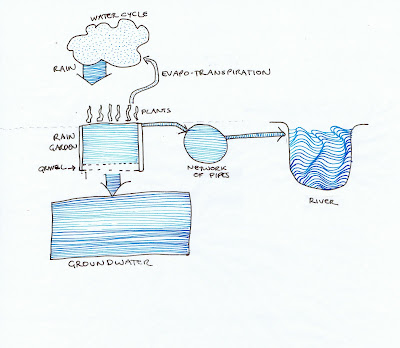 WATER CYCLE
RAIN
EVAPO-TRANSPIRATION
PLANTS
RAIN
GARDEN
GRAVEL
NETWORK
OF PIPES
RIVER
GROUNDWATER